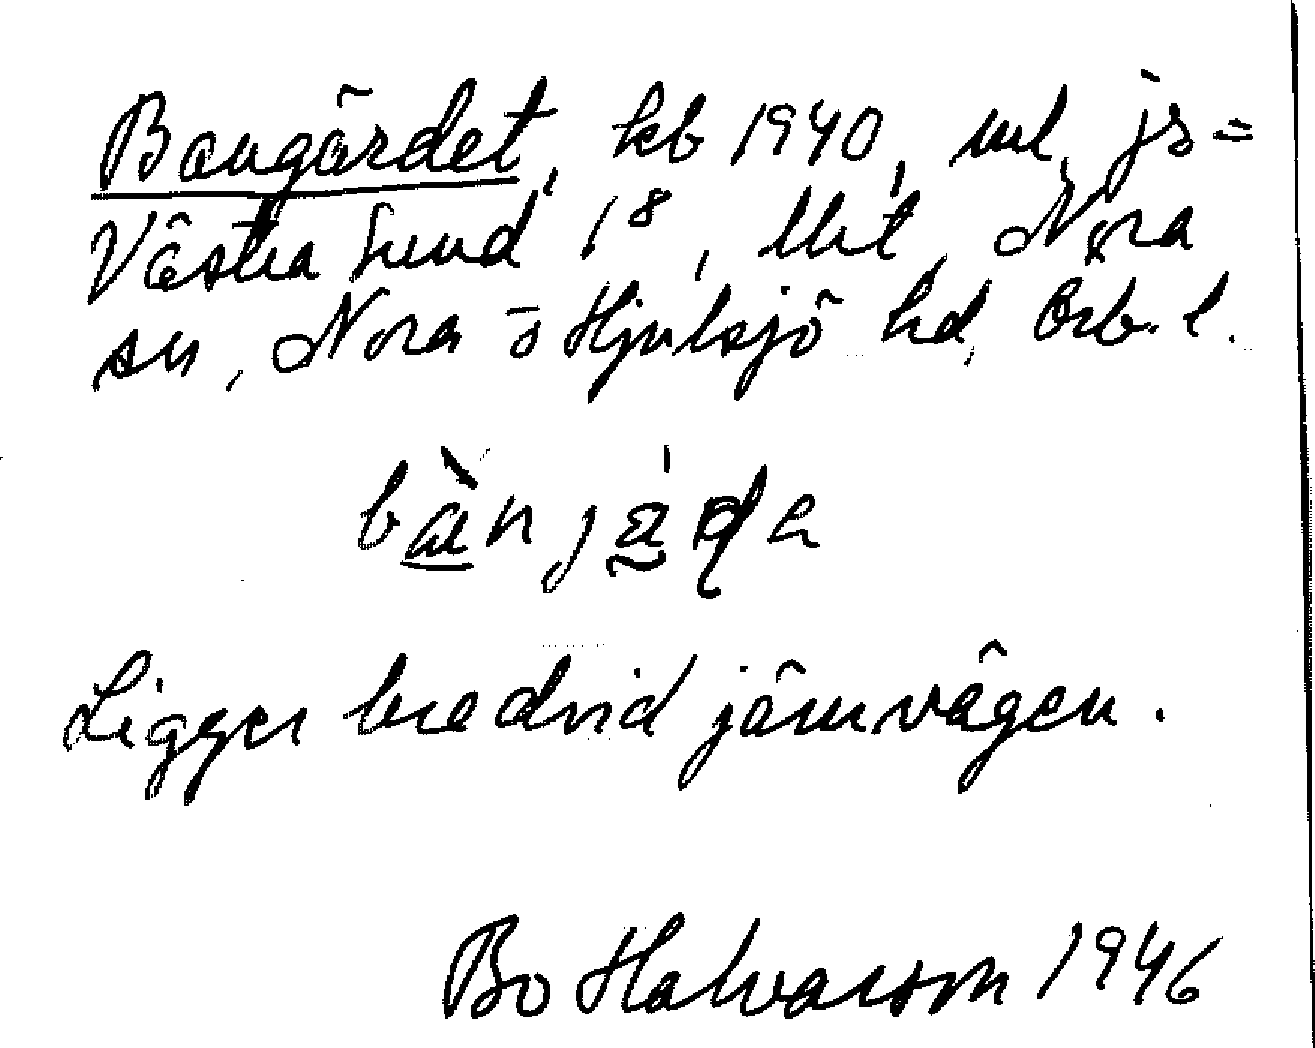 Bangärdet, kb 1940, ml, js =
Västra Sund 1⁸, lht, Nora
sn, Nora o Hjulsjö hd, Örb. l.
bànjä́ḍa
Ligger bredvid järnvägen.
Bo Halvarson 1946